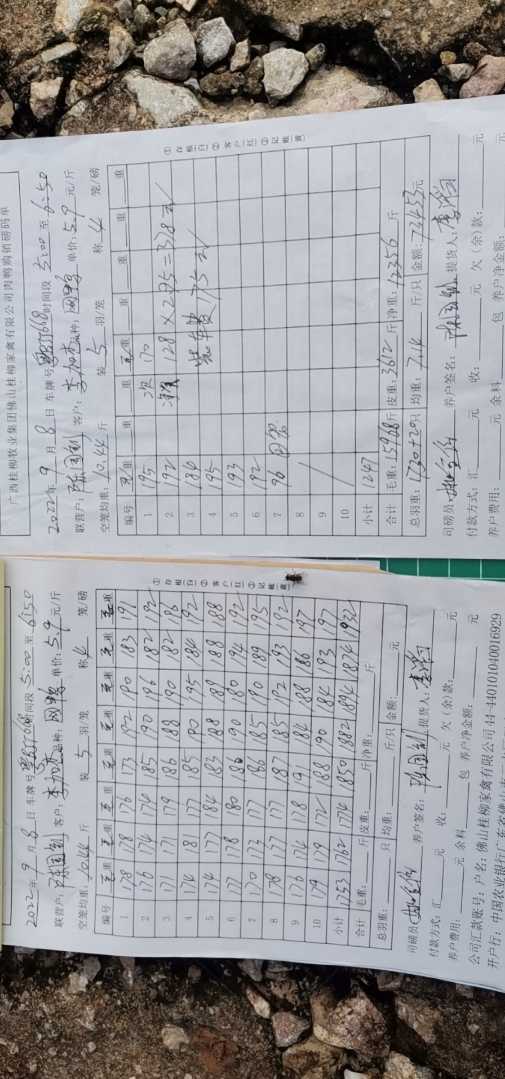 广西桂柳牧业集团佛山桂柳家禽有限公司肉鸭购销磅码单
2022年 9 月 8 日 车牌号 时间段 5:00 至 6:50
联营户: 陈国剑 客户: 李加杰 品种: 网鸭 单价: 5.9 元/斤
空笼均重: 10.44 斤 装 5 羽/笼 称 4 笼/磅
编号 毛重 重 重 毛重 重 重 重 重
1 195 次 170
2 192 128 × 2.95 = 378元
3 184
4 195 装车费175元
5 193
6 192
7 96
8
9
10
小计 1247
合计 毛重: 15968 斤 皮重: 3612 斤 净重: 12356 斤
总羽重: 1730+20只 均重: 7.14 斤/只 金额: 72453元
司磅员: 养户签名: 陈国剑 提货人:
付款方式: 汇 元 收: 元 欠(余)款: 元
养户费用: 元 余料 包 养户净金额: 元
①存根(白) ②客户(红) ③记账(黄)
2022年 9 月 8 日 车牌号 时间段 5:00 至 6:50
联营户: 陈国剑 客户: 李加杰 品种: 网鸭 单价: 5.9 元/斤
空笼均重: 10.44 斤 装 5 羽/笼 称 4 笼/磅
编号 毛重 毛重 毛重 毛重 毛重 毛重 毛重 毛重
1 178 178 176 173 192 190 183 191
2 176 174 174 185 190 196 182 192
3 171 171 179 186 188 190 182 196
4 174 181 177 185 190 195 184 192
5 174 177 184 183 188 189 188 188
6 177 178 180 186 190 180 194 192
7 170 173 177 186 185 190 189 195
8 178 177 177 187 185 192 193 192
9 176 174 178 191 184 188 186 197
10 179 179 172 188 190 184 193 197
小计 1753 1762 1774 1850 1882 1894 1874 1932
合计 毛重: 斤 皮重: 斤 净重: 斤
总羽重: 只 均重: 斤/只 金额: 元
司磅员: 养户签名: 陈国剑 提货人:
付款方式: 汇 元 收: 元 欠(余)款: 元
养户费用: 元 余料 包 养户净金额: 元
公司汇款账号: 户名: 佛山桂柳家禽有限公司 44-440101040016929
开户行: 中国农业银行广东省佛山市
①存根(白) ②客户(红) ③记账(黄)